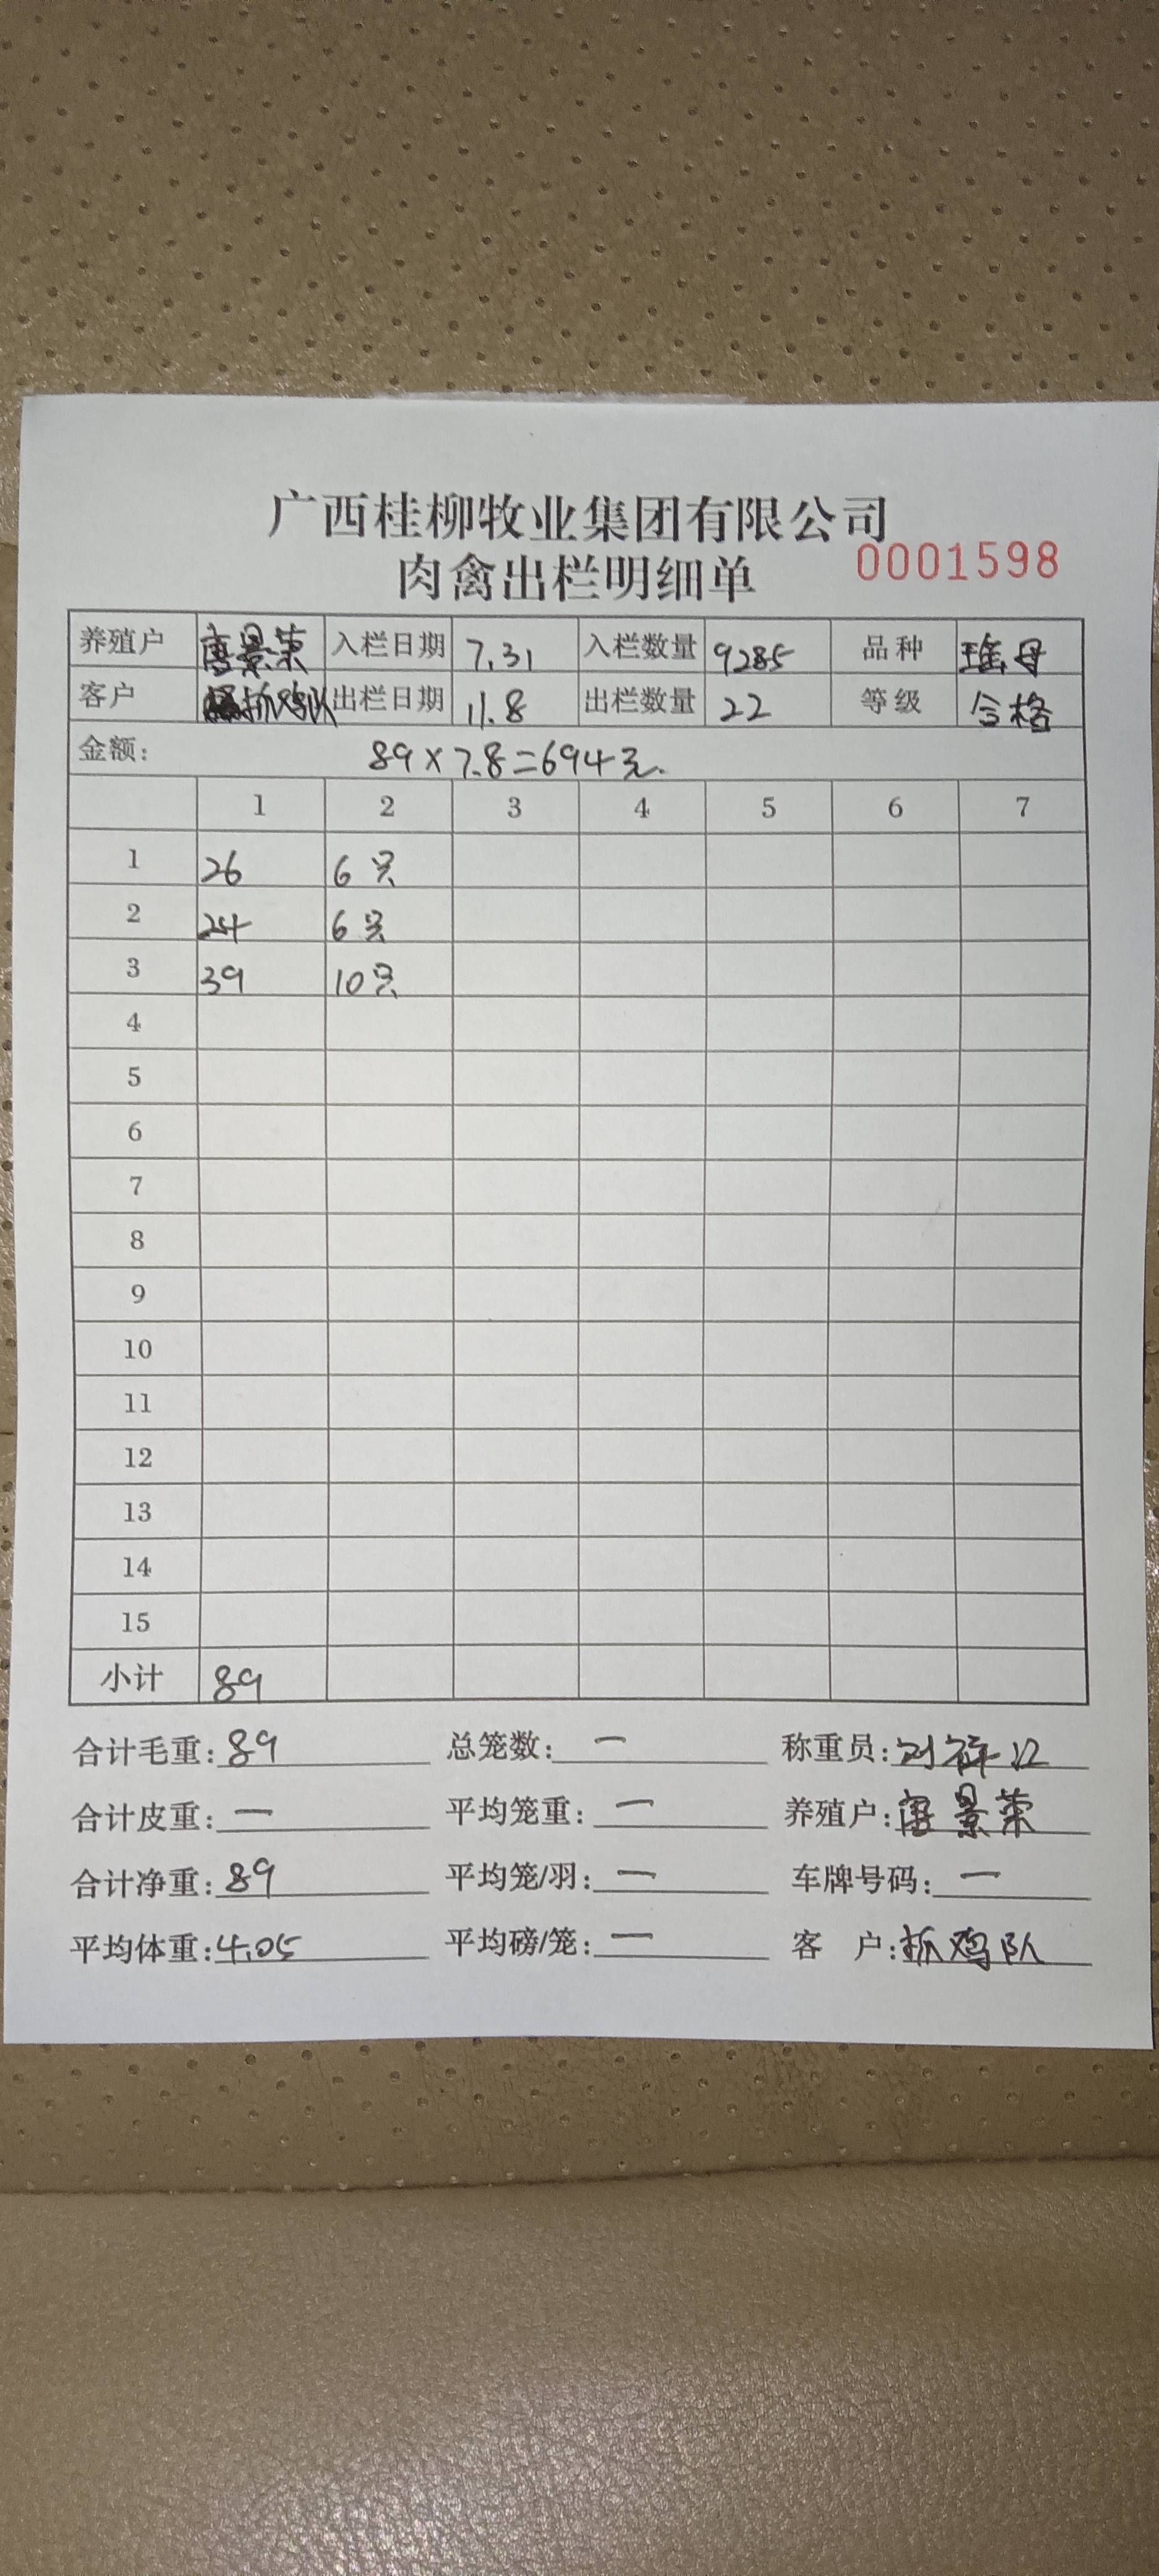 广西桂柳牧业集团有限公司
肉禽出栏明细单 0001598
养殖户 唐景荣 入栏日期 7.31 入栏数量 9285 品种 瑶母
客户 抓鸡队 出栏日期 11.8 出栏数量 22 等级 合格
金额: 89×7.8=694元.
1 2 3 4 5 6 7
1 26 6只
2 24 6只
3 39 10只
4
5
6
7
8
9
10
11
12
13
14
15
小计 89
合计毛重:89 总笼数:一 称重员:刘
合计皮重:一 平均笼重:一 养殖户:唐景荣
合计净重:89 平均笼/羽:一 车牌号码:一
平均体重:4.05 平均磅/笼:一 客 户:抓鸡队